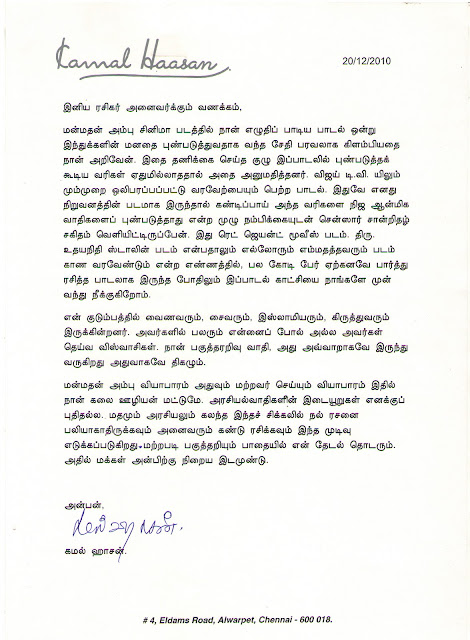 Kamal Haasan
20/12/2010
இனிய ரசிகர் அனைவர்க்கும் வணக்கம்,
மன்மதன் அம்பு சினிமா படத்தில் நான் எழுதிப் பாடிய பாடல் ஒன்று
இந்துக்களின் மனதை புண்படுத்துவதாக வந்த சேதி பரவலாக கிளம்பியதை
நான் அறிவேன். இதை தணிக்கை செய்த குழு இப்பாடலில் புண்படுத்தக்
கூடிய வரிகள் ஏதுமில்லாததால் அதை அனுமதித்தனர். விஜய் டி.வி. யிலும்
மும்முறை ஒலிபரப்பப்பட்டு வரவேற்பையும் பெற்ற பாடல். இதுவே எனது
நிறுவனத்தின் படமாக இருந்தால் கண்டிப்பாய் அந்த வரிகளை நிஜ ஆன்மிக
வாதிகளைப் புண்படுத்தாது என்ற முழு நம்பிக்கையுடன் சென்ஸார் சான்றிதழ்
சகிதம் வெளியிட்டிருப்பேன். இது ரெட் ஜெயன்ட் மூவீஸ் படம். திரு.
உதயநிதி ஸ்டாலின் படம் என்பதாலும் எல்லோரும் எம்மதத்தவரும் படம்
காண வரவேண்டும் என்ற எண்ணத்தில், பல கோடி பேர் ஏற்கனவே பார்த்து
ரசித்த பாடலாக இருந்த போதிலும் இப்பாடல் காட்சியை நாங்களே முன்
வந்து நீக்குகிறோம்.
என் குடும்பத்தில் வைணவரும், சைவரும், இஸ்லாமியரும், கிருத்துவரும்
இருக்கின்றனர். அவர்களில் பலரும் என்னைப் போல் அல்ல அவர்கள்
தெய்வ விஸ்வாசிகள். நான் பகுத்தறிவு வாதி, அது அவ்வாறாகவே இருந்து
வருகிறது அதுவாகவே திகழும்.
மன்மதன் அம்பு வியாபாரம் அதுவும் மற்றவர் செய்யும் வியாபாரம் இதில்
நான் கலை ஊழியன் மட்டுமே. அரசியல்வாதிகளின் இடையூறுகள் எனக்குப்
புதிதல்ல. மதமும் அரசியலும் கலந்த இந்தச் சிக்கலில் நல் ரசனை
பலியாகாதிருக்கவும் அனைவரும் கண்டு ரசிக்கவும் இந்த முடிவு
எடுக்கப்படுகிறது-மற்றபடி பகுத்தறியும் பாதையில் என் தேடல் தொடரும்.
அதில் மக்கள் அன்பிற்கு நிறைய இடமுண்டு.
அன்பன்,
கமல் ஹாசன்.
கமல் ஹாசன்.
# 4, Eldams Road, Alwarpet, Chennai - 600 018.